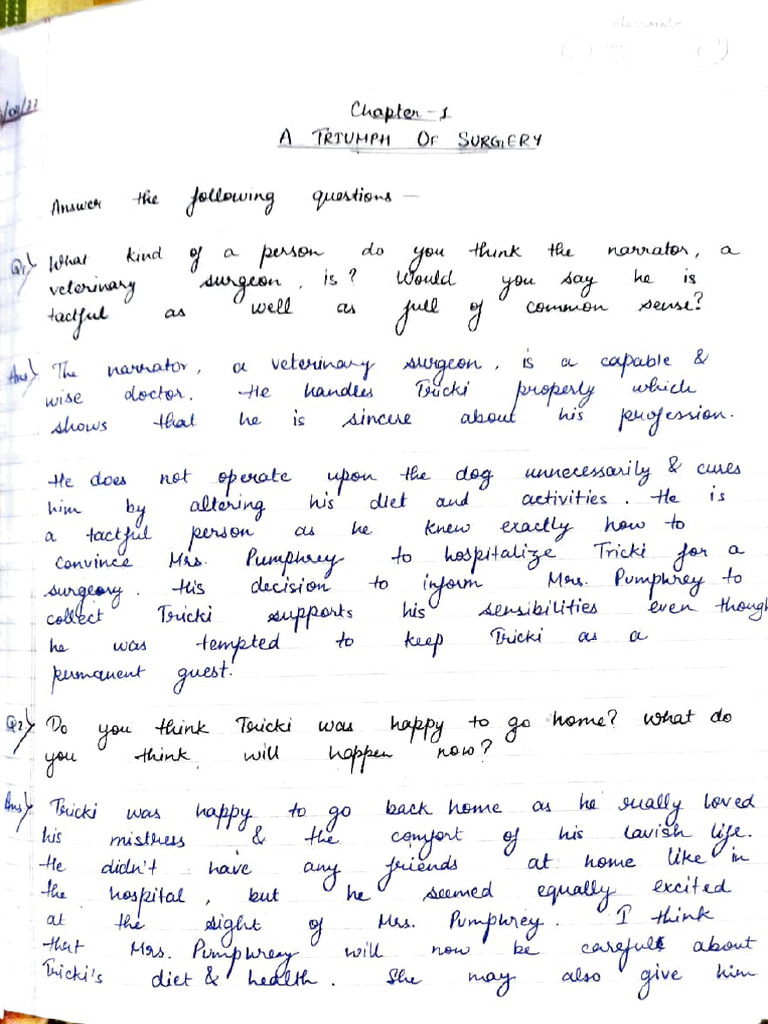 classmate
/08/22
Chapter-1
A TRIUMPH OF SURGERY
Answer the following questions —
Q1) What kind of a person do you think the narrator, a
veterinary surgeon, is? Would you say he is
tactful as well as full of common sense?
Ans) The narrator, a veterinary surgeon, is a capable &
wise doctor. He handles Tricki properly which
shows that he is sincere about his profession.
He does not operate upon the dog unnecessarily & cures
him by altering his diet and activities. He is
a tactful person as he knew exactly how to
convince Mrs. Pumphrey to hospitalize Tricki for a
surgeory. His decision to inform Mrs. Pumphrey to
collect Tricki supports his sensibilities even though
he was tempted to keep Tricki as a
permanent guest.
Q2) Do you think Tricki was happy to go home? What do
you think will happen now?
Ans) Tricki was happy to go back home as he really loved
his mistress & the comfort of his lavish life.
He didn't have any friends at home like in
the hospital, but he seemed equally excited
at the sight of Mrs. Pumphrey. I think
that Mrs. Pumphrey will now be careful about
Tricki's diet & health. She may also give him